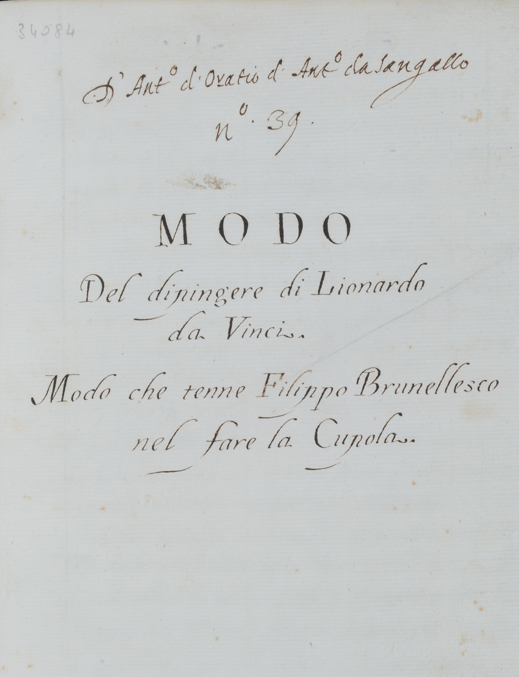 34084
D' Ant.º d' Oratio d' Ant.º da Sangallo
nº. 39.
MODO
Del dipingere di Lionardo
da Vinci.
Modo che tenne Filippo Brunellesco
nel fare la Cupola.